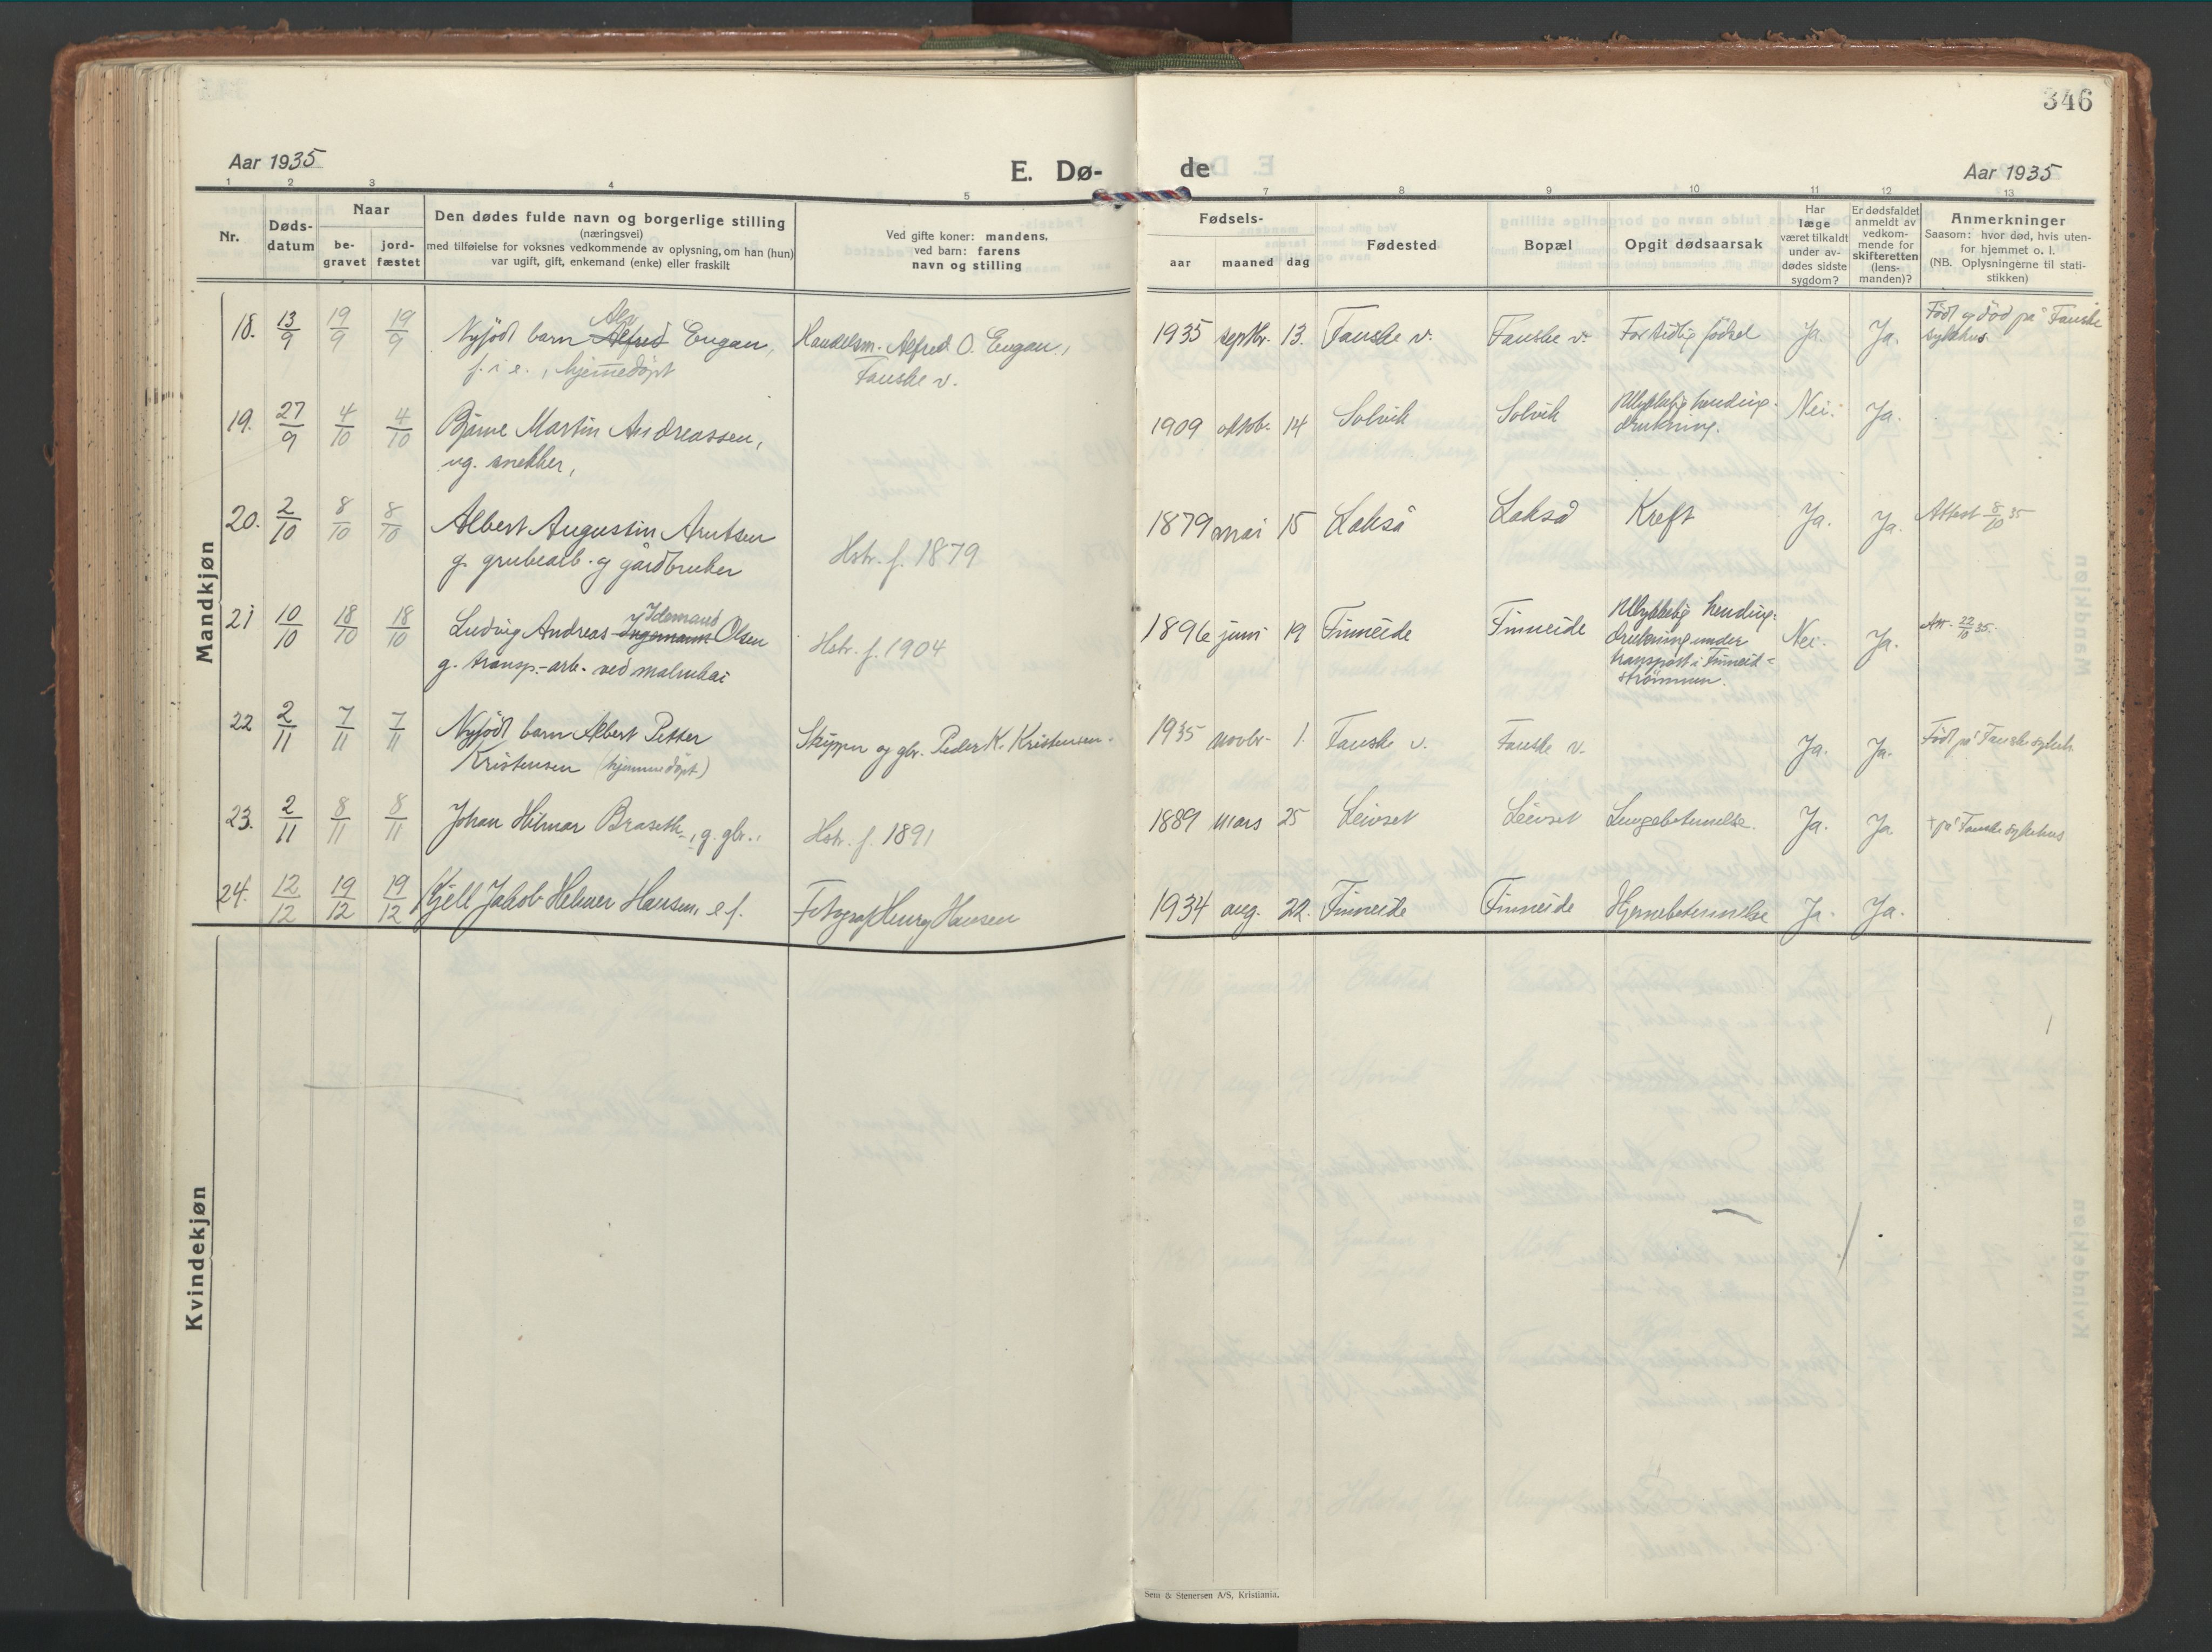 346
Aar 1935
E. Dø-
de
Aar 1935
1 2 3 4 5
7 8 9 10 11 12 13
Nr.
Døds-
datum
Naar
be-
gravet
jord-
fæstet
Den dødes fulde navn og borgerlige stilling
(næringsvei)
med tilføielse for voksnes vedkommende av oplysning, om han (hun)
var ugift, gift, enkemand (enke) eller fraskilt
Ved gifte koner: mandens,
ved barn: farens
navn og stilling
Fødsels-
aar maaned dag
Fødested
Bopæl
Opgit dødsaarsak
Har
læge
været tilkaldt
under av-
dødes sidste
sygdom?
Er dødsfaldet
anmeldt av
vedkom-
mende for
skifteretten
(lens-
manden)?
Anmerkninger
Saasom: hvor død, hvis uten-
for hjemmet o. l.
(NB. Oplysningerne til stati-
stikken)
Mandkjøn
18. 13/9 19/9 19/9 Nyfödt barn Alfred Engan,
f. i e., hjemmedöpt
Handelsm. Alfred O. Engan,
Fauske v.
1935 septbr. 13. Fauske v. Fauske v. For tidlig födsel Ja. Ja.
Födt og död på Fauske
sykehus.
19. 27/9 4/10 4/10 Bjarne Martin Andreassen,
ug. snekker,
1909 oktob. 14 Solvik Solvik Ulykkelig hending.
drukning.
Nei. Ja.
20. 2/10 8/10 8/10 Albert Augustin Arntsen
g. grubearb. og gårdbruker
Hstr. f. 1879
1879 mai 15 Lakså Lakså Kreft Ja. Ja. Attest 8/10 35
21 10/10 18/10 18/10 Ludvig Andreas Ingemann Olsen
Idemand
g. transp.-arb. ved malmkai
Hstr. f. 1904
1896 juni 19 Finneide Finneide Ulykkelig hending.
drukning under
transport i Finneid-
strömmen.
Nei. Ja. Att. 22/10 35.
22 2/11 7/11 7/11 Nyfödt barn Albert Petter
Kristensen (hjemmedöpt)
Skipper og gbr. Peder K. Kristensen.
1935 novbr. 1. Fauske v. Fauske v. Ja. Ja. Födt på Fauske sykeh.
23. 2/11 8/11 8/11 Johan Hilmar Braseth, g. gbr.,
Hstr. f. 1891
1889 mars 25 Leivset Leivset Lungebetennelse. Ja. Ja † på Fauske sykehus
24. 12/12 19/12 19/12 Kjell Jakob Helmer Hansen, e f.
Fotograf Henry Hansen
1934 aug. 22. Finneide Finneide Hjernebetennelse Ja. Ja.
Kvindekjøn
Sem & Stenersen A/S, Kristiania.